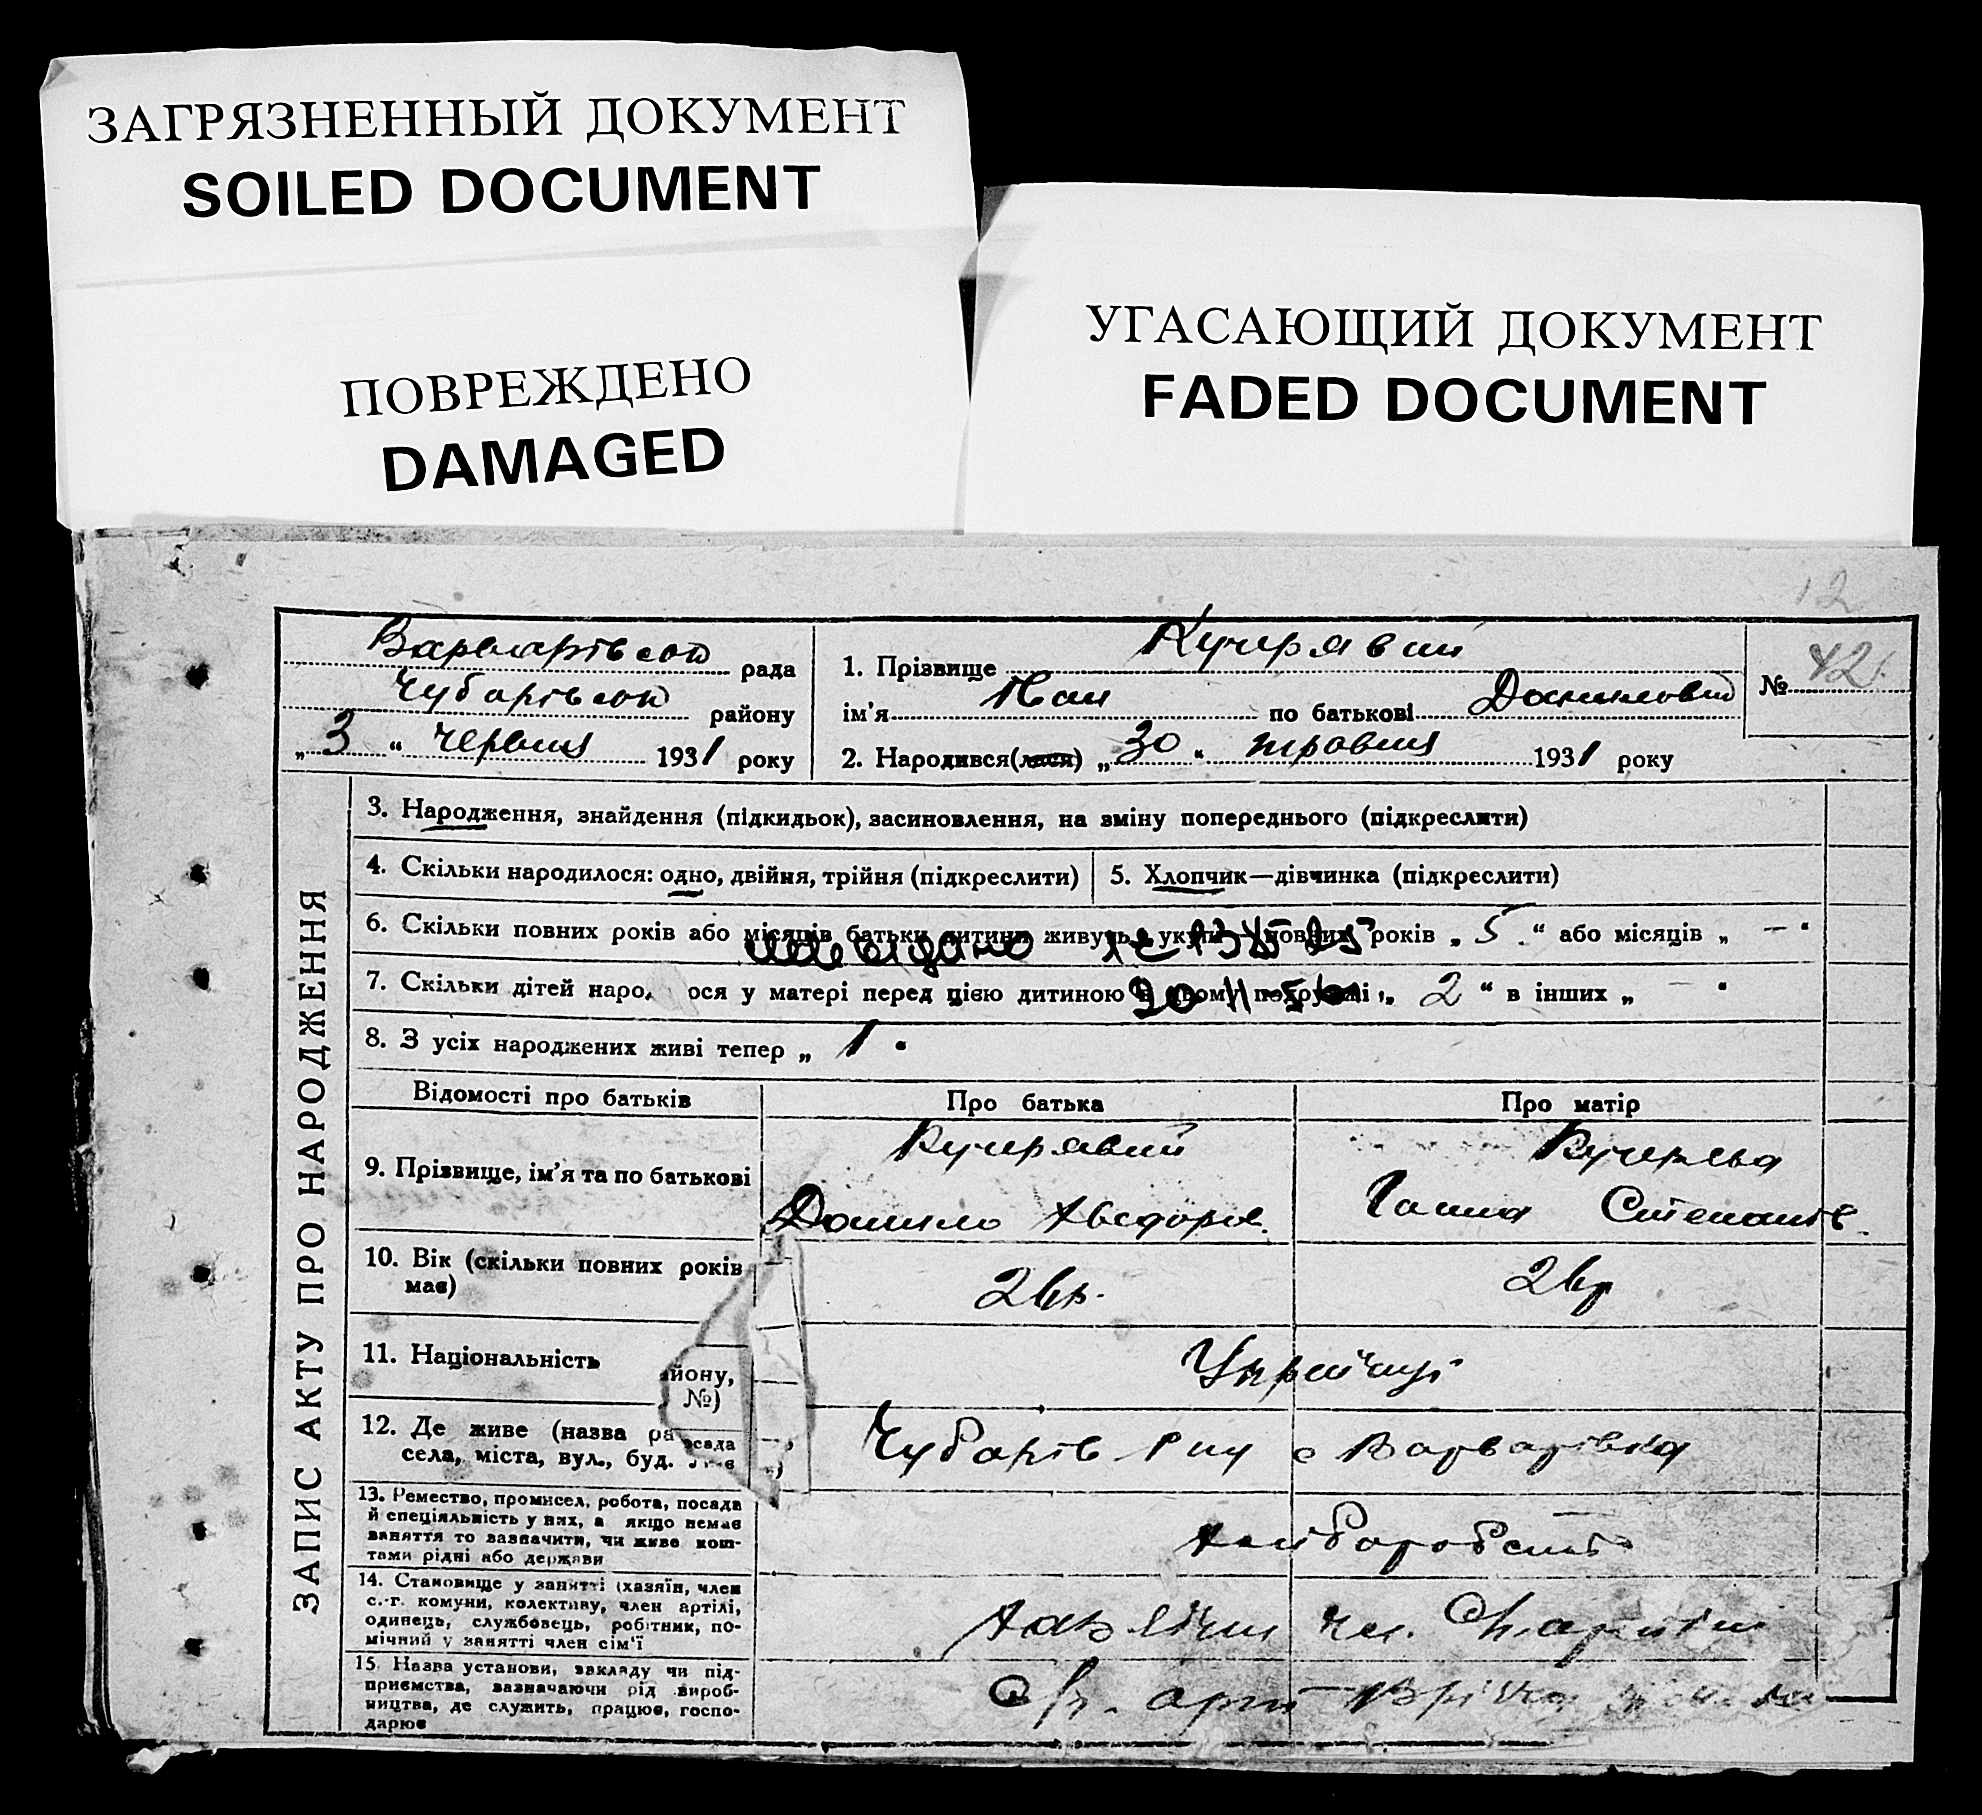 ЗАГРЯЗНЕННЫЙ ДОКУМЕНТ
SOILED DOCUMENT
ПОВРЕЖДЕНО
DAMAGED
УГАСАЮЩИЙ ДОКУМЕНТ
FADED DOCUMENT
12
Варварівської рада
Чубарівськ району
„ 3 “ червня 1931 року
1. Прізвище Кучерявий
ім'я Іван по батькові Данилович
2. Народився(лася) „ 30 “ травня 1931 року
№ 42
ЗАПИС АКТУ ПРО НАРОДЖЕННЯ
3. Народження, знайдення (підкидьок), засиновлення, на зміну попереднього (підкреслити)
4. Скільки народилося: одно, двійня, трійня (підкреслити)
5. Хлопчик—дівчинка (підкреслити)
6. Скільки повних років або місяців батьки дитини живуть укупі повних років „ 5 “ або місяців „ — “
7. Скільки дітей наро ося у матері перед цією дитиною в цьому подружжі „ 2 “ в інших „ — “
20 11
8. З усіх народжених живі тепер „ 1 “
Відомості про батьків
Про батька
Про матір
9. Прізвище, ім'я та по батькові
Кучерявий
Данило
Кучерява
Ганна Степанів.
10. Вік (скільки повних років
має)
26 р.
26 р
11. Національність
Українці
йону,
№)
12. Де живе (назва ра
села, міста, вул., буд.
осада
Чубарів р-ну с Варварівка
13. Ремество, промисел, робота, посада
й спеціяльність у них, а якщо немає
заняття то зазначити, чи живе кош-
тами рідні або держави
хліборобств
14. Становище у занятті (хазяїн, член
с.-г. комуни, колективу, член артілі,
одинець, службовець, робітник, по-
мічний у занятті член сім'ї
чл.
15. Назва установи, закладу чи під-
приємства, зазначаючи рід вироб-
ництва, де служить, працює, госпо-
дарює
арт